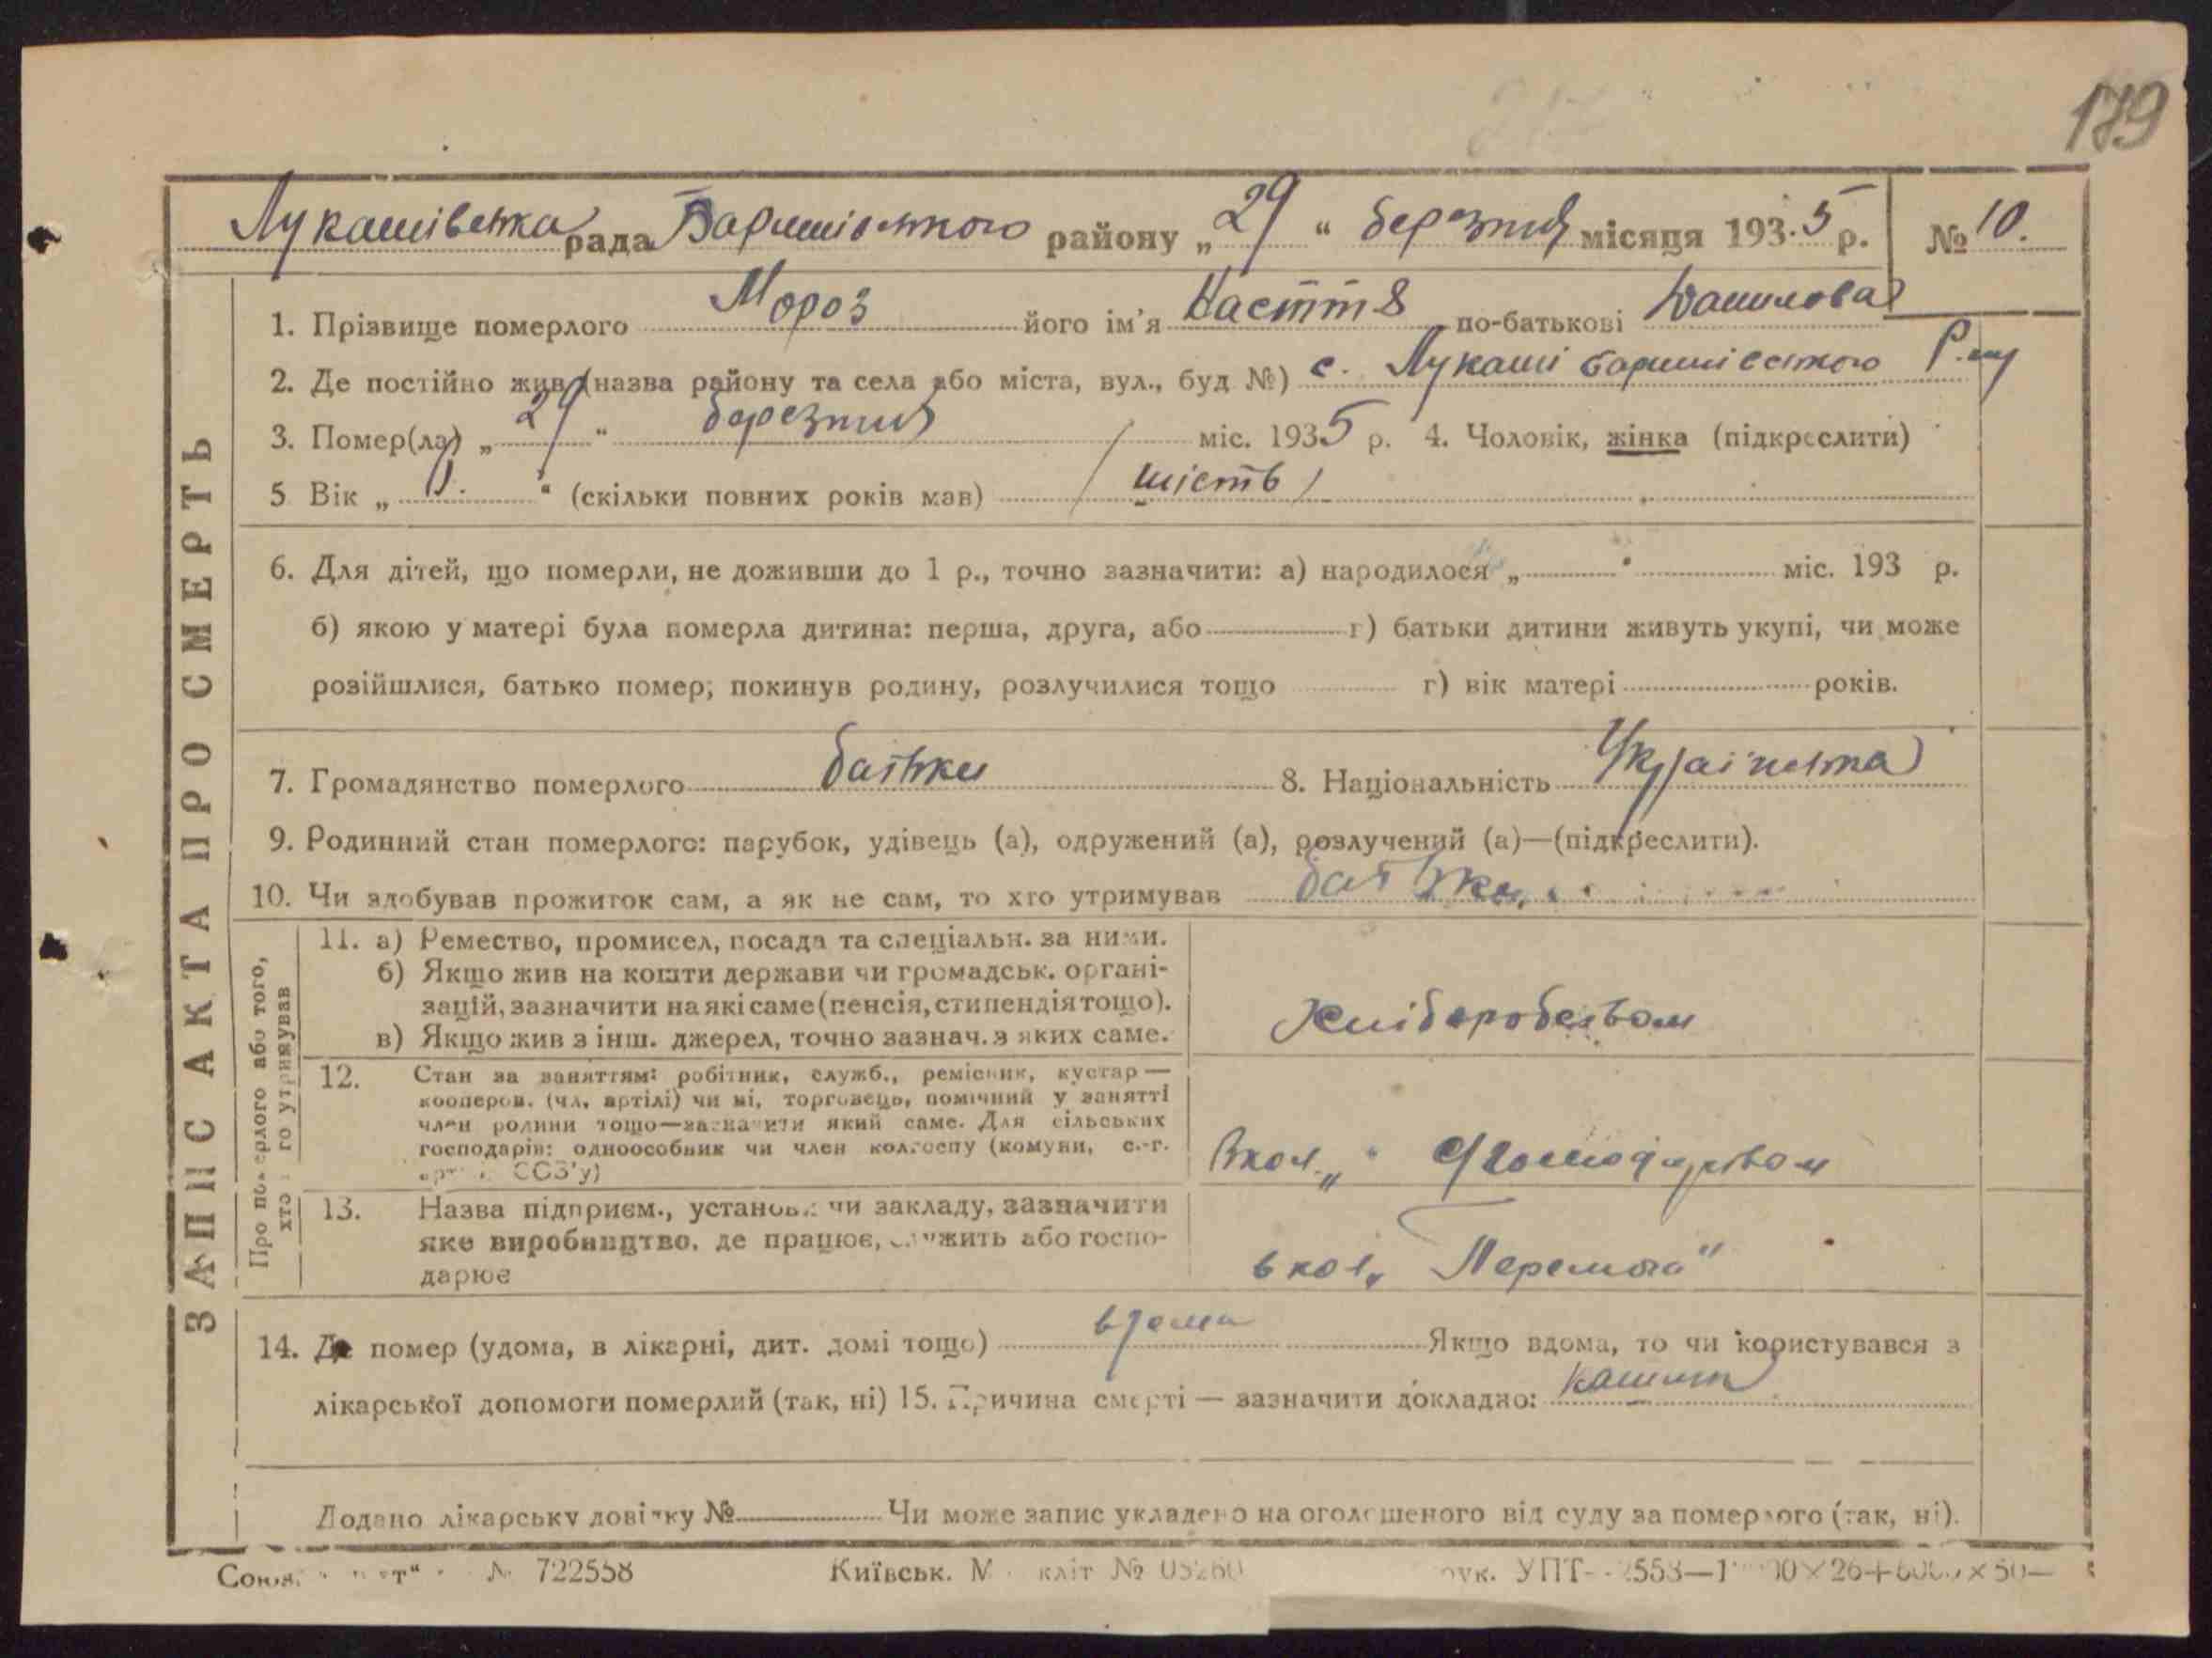 179
Лукашівська рада Баришівського району „29“ березня місяця 1935 р. № 10.
ЗАПИС АКТА ПРО СМЕРТЬ
1. Прізвище померлого Мороз його ім'я Настя по-батькові Данилова
2. Де постійно жив (назва району та села або міста, вул., буд №) с. Лукаші Баришівського Р-ну
3. Помер(ла) „29“ березня міс. 1935 р. 4. Чоловік, жінка (підкреслити)
5 Вік „ “ (скільки повних років мав) / шість /
6. Для дітей, що померли, не доживши до 1 р., точно зазначити: а) народилося „ “ міс. 193 р.
б) якою у матері була померла дитина: перша, друга, або г) батьки дитини живуть укупі, чи може
розійшлися, батько помер; покинув родину, розлучилися тощо г) вік матері років.
7. Громадянство померлого батьки 8. Національність Українка
9. Родинний стан померлого: парубок, удівець (а), одружений (а), розлучений (а)—(підкреслити).
10. Чи здобував прожиток сам, а як не сам, то хто утримував батьки
Про померлого або того,
хто його утримував
11. а) Ремество, промисел, посада та спеціальн. за ними.
б) Якщо жив на кошти держави чи громадськ. органі-
зацій, зазначити на які саме (пенсія, стипендія тощо).
в) Якщо жив з інш. джерел, точно зазнач. з яких саме.
12. Стан за заняттям: робітник, служб., ремісник, кустар —
кооперов. (чл. артілі) чи ні, торговець, помічний у занятті
член родини тощо—зазначити який саме. Для сільських
господарів: одноосібник чи член колгоспу (комуни, с.-г.
СОЗ'у)
13. Назва підприєм., установи чи закладу, зазначити
яке виробництво, де працює, служить або госпо-
дарює
в кол. „Перемога“
14. Де помер (удома, в лікарні, дит. домі тощо) вдома Якщо вдома, то чи користувався з
лікарської допомоги померлий (так, ні) 15. Причина смерті — зазначити докладно:
Додано лікарську довідку № Чи може запис укладено на оголошеного від суду за померлого (так, ні).
№ 722558 Київськ. УПТ